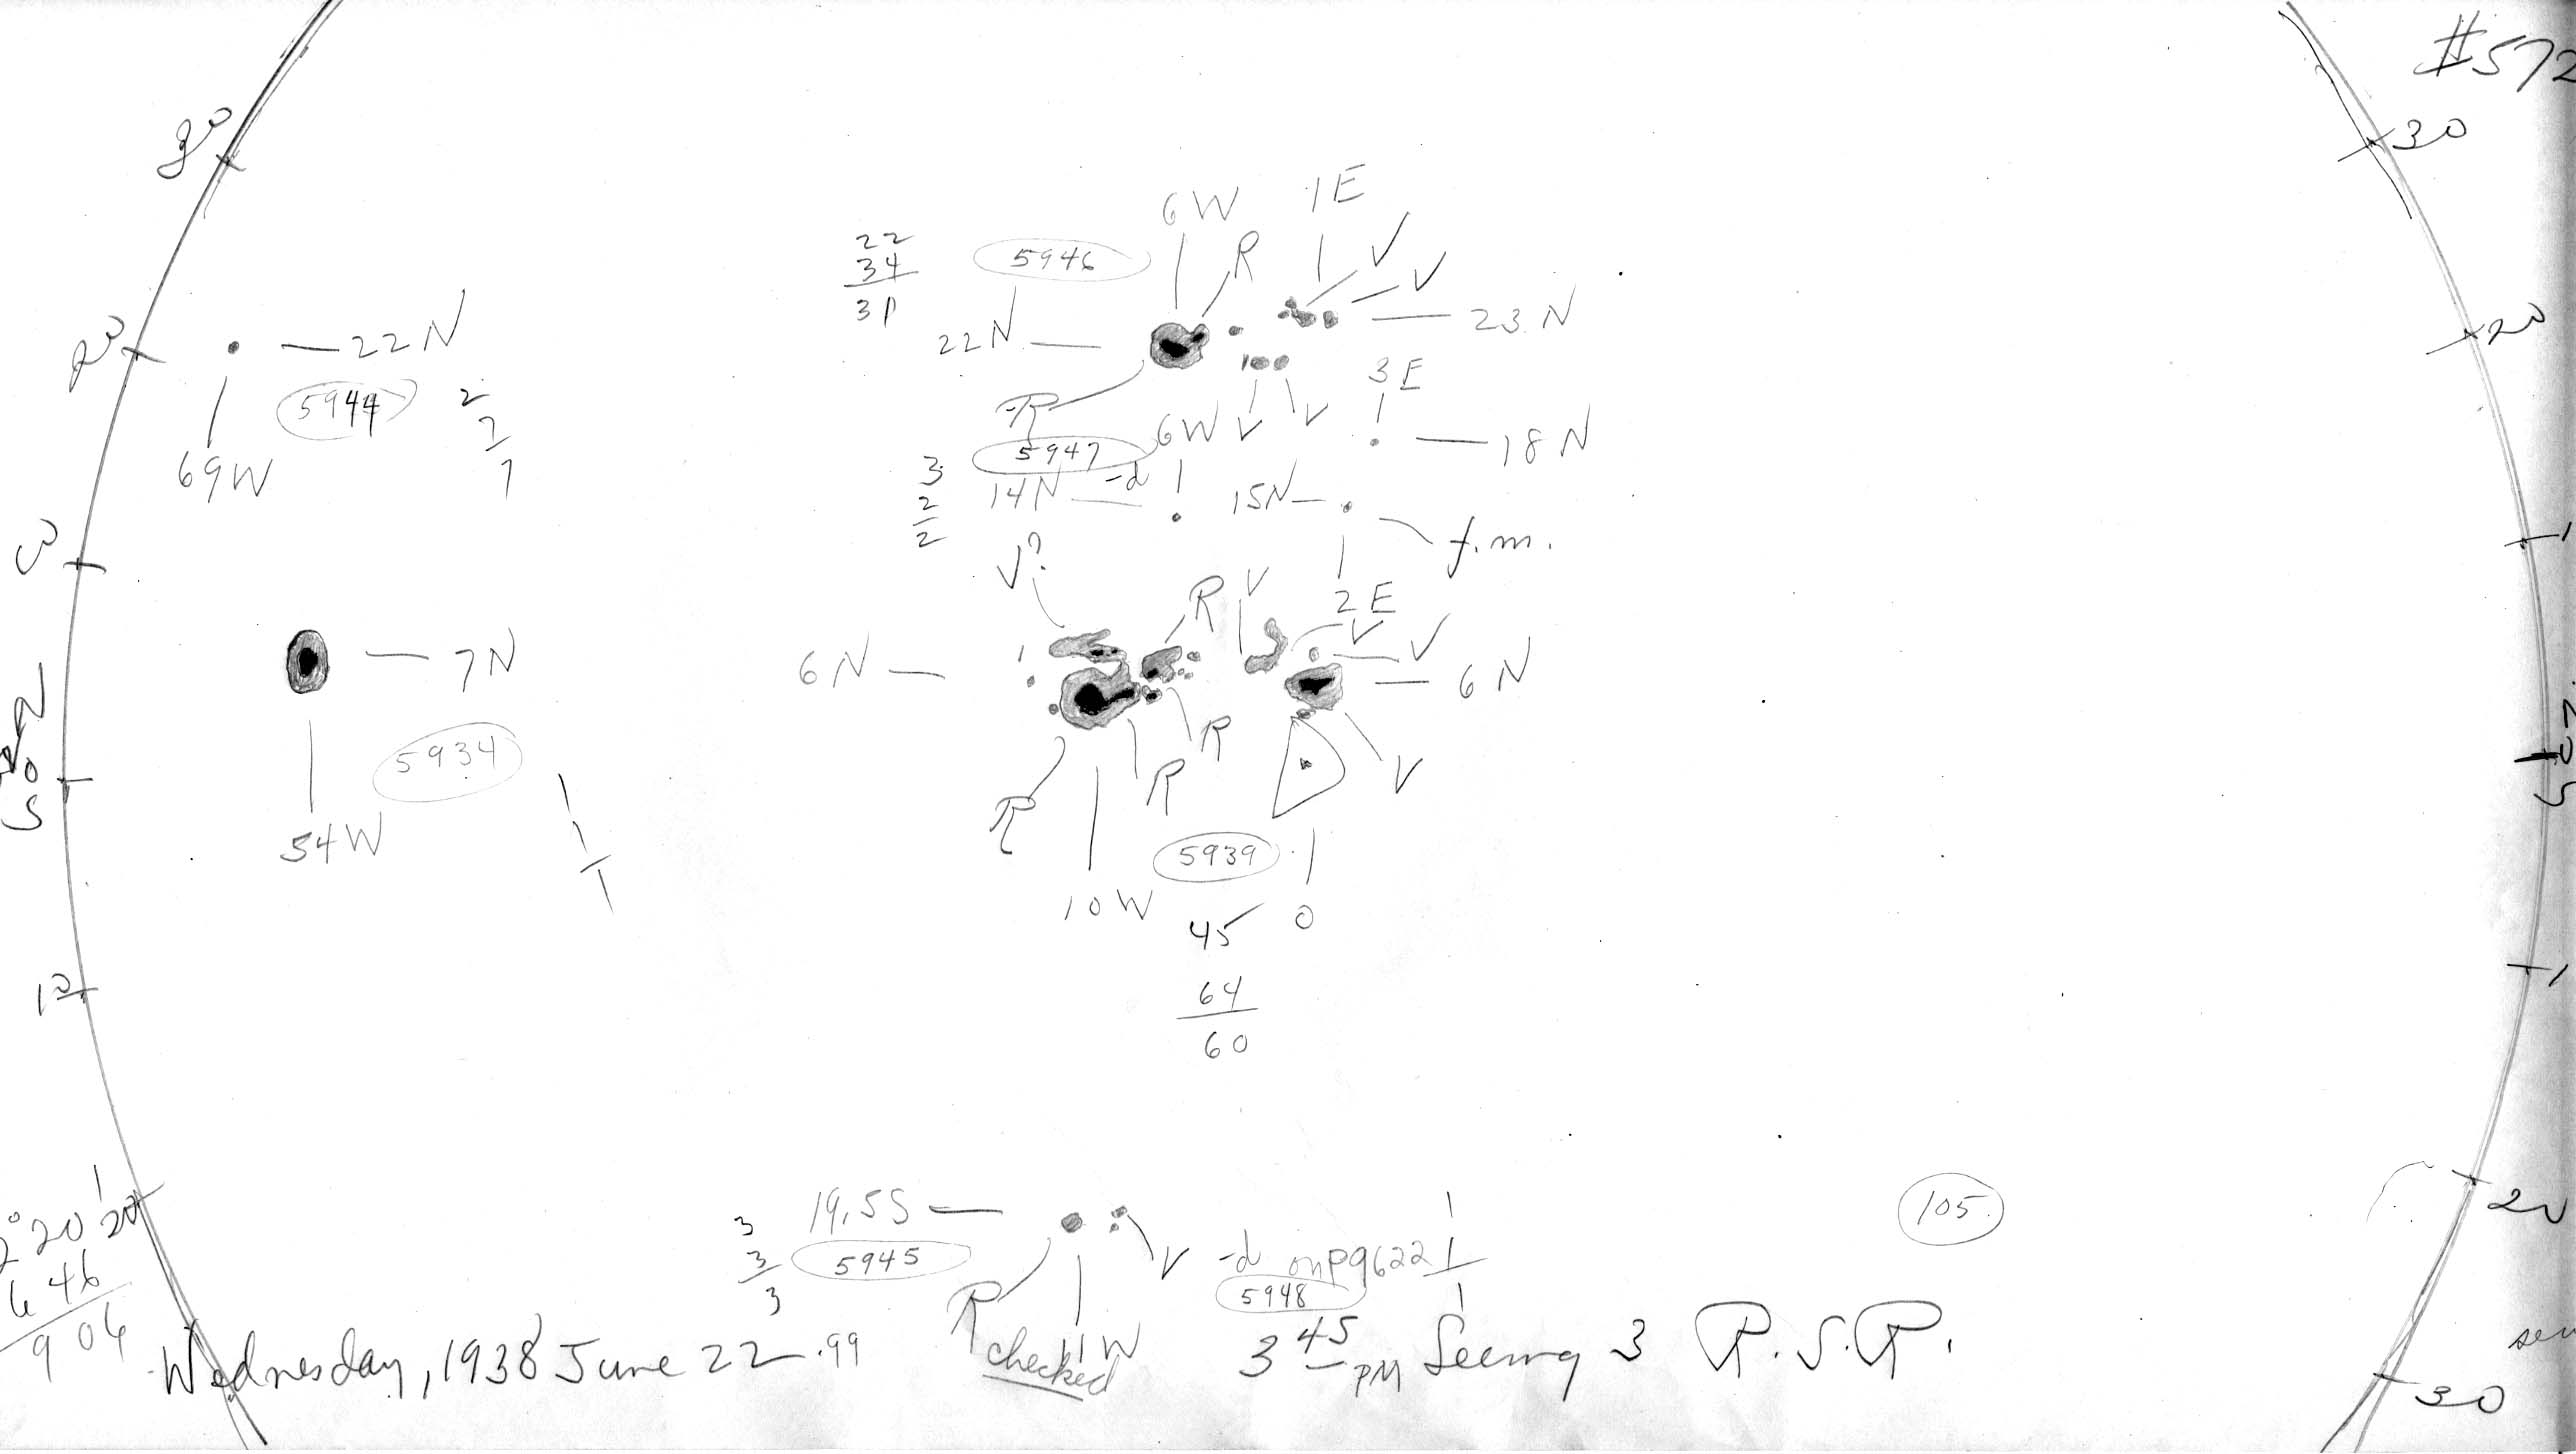 #572
30
30
6W
1E
R
V
V
22
34
31
5946
22N
23N
20
20
22N
5944
69W
2
2
1
R
V
V
3E
18N
5947
6W
3
2
2
14N
-d
15N
f.m.
2E
V?
R
V
V
V
6N
6N
7N
5934
54W
1
1
1
N
S
0
R
R
R
V
10W
5939
0
45
64
60
10
20
20
19.5S
5945
3
3
3
R
11W
V
-d onp9622
5948
1
1
1
105
20 20
6 46
9 06
30
Wednesday, 1938 June 22.99
checked
3 45 PM Seeing 3 R.S.R.